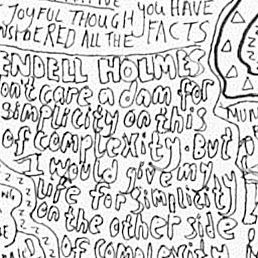 JOYFUL THOUGH YOU HAVE
CONSIDERED ALL THE FACTS
WENDELL HOLMES
don't care a damn for
simplicity on this
of complexity. But
I would give my
life for simplicity
on the other side
of complexity